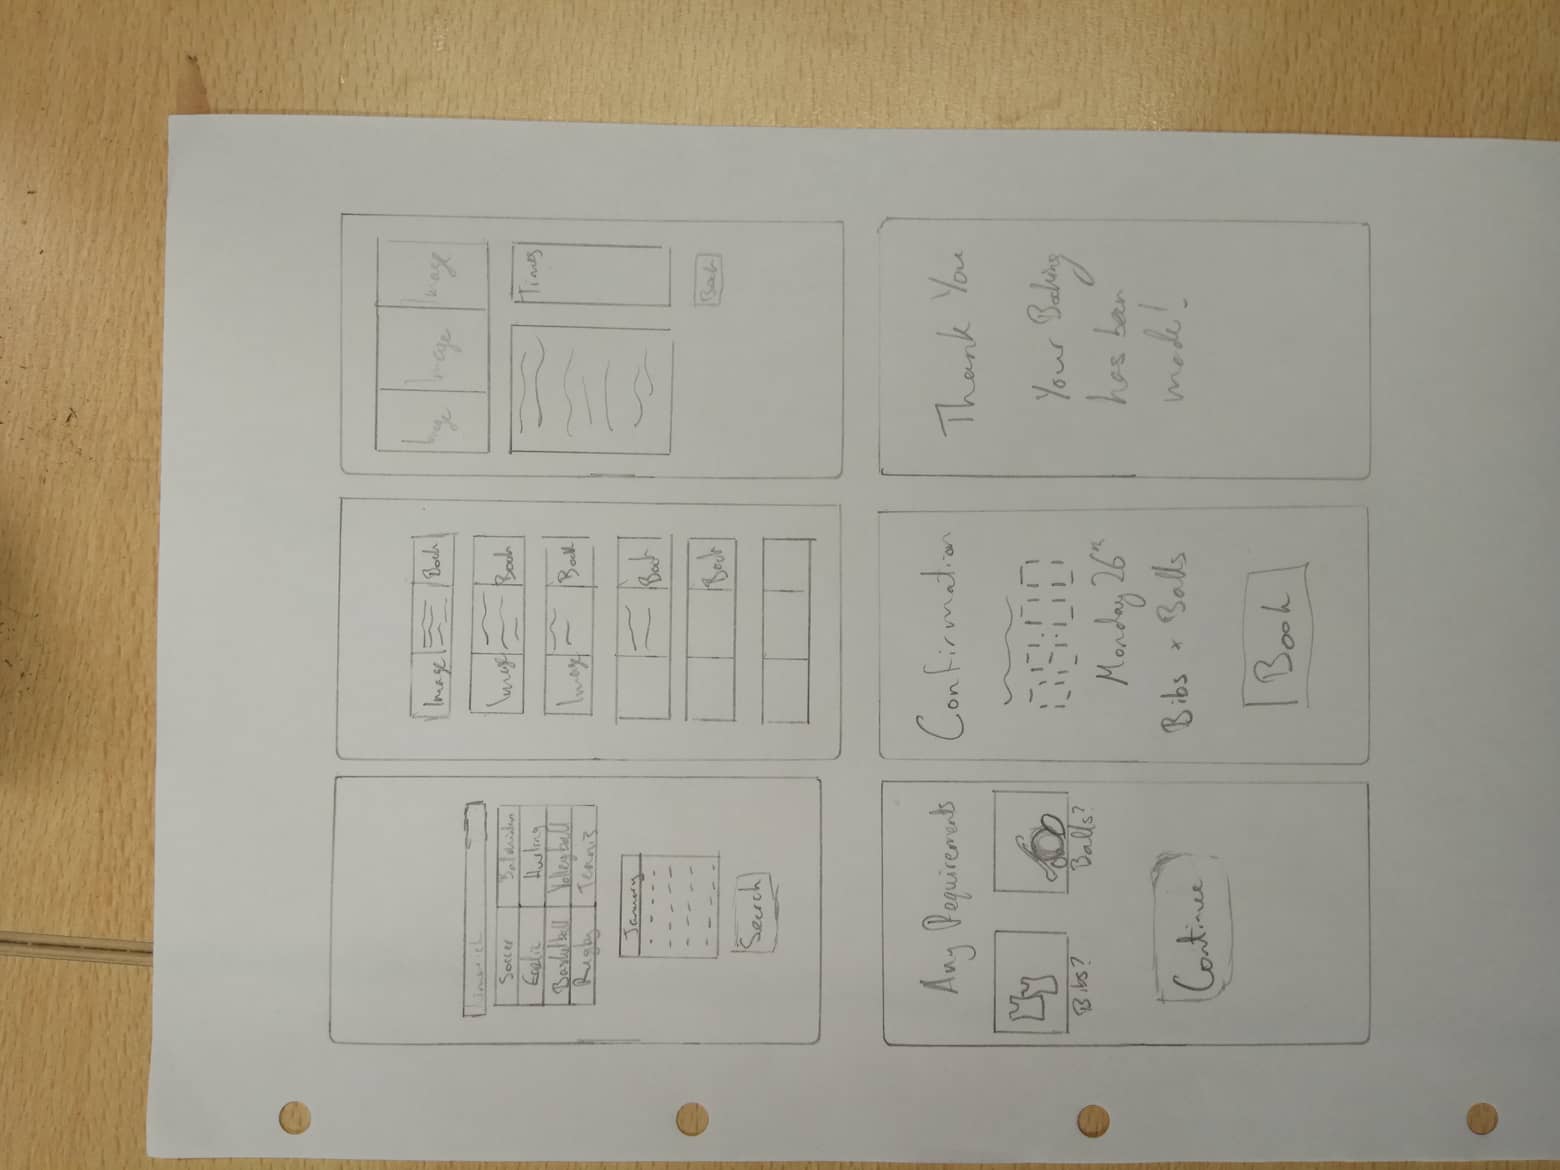 Limerick
Soccer Batminton
Gaelic Hurling
Basketball Volleyball
Rugby Tennis
January
Search
Image Book
Image Book
Image Book
Book
Book
Image Image Image
Times
Book
Any Requirements
Bibs? Balls?
Continue
Confirmation
Monday 26th
Bibs + Balls
Book
Thank You
Your Booking
has been
made!